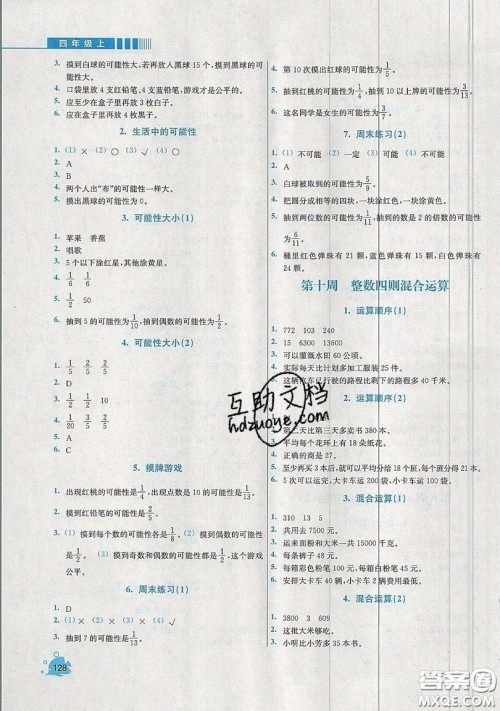 四年级上
3. 摸到白球的可能性大,若再放入黑球 15 个,摸到黑球的可能性大。
4. 口袋里放 4 支红铅笔,4 支蓝铅笔,游戏才是公平的。
5. 应至少在盒子里再放 4 枚白子。
6. 应在盒子里再放 9 枚黑子。
2. 生活中的可能性
1. (1) × (2) ○ (3) ○ (4) √
2. A
3. A
4. 两个人出“布”的可能性一样大。
5. 摸出黑球的可能性为 0。
3. 可能性大小(1)
1. 苹果 香蕉
2. 唱歌
3. 5 个以下涂红星,其他涂黄星。
4. 1/2 1/2
5. 1/2 50
6. 抽到 5 的可能性为 1/10,抽到偶数的可能性为 1/2。
4. 可能性大小(2)
1. 1/5 2/5 2/5
2. D
3. 1/2 1/5 1/2
4. 1/20 3/5 1/5
5. B
6. D
5. 摸牌游戏
1. 出现红桃的可能性是 1/4,出现点数是 10 的可能性是 1/13。
2. 摸到红铅笔的可能性是 2/5。
3. (1) 摸到每个数的可能性各是 1/8。 (2) 摸到每个偶数的可能性各是 1/8。 (3) 摸到奇数和偶数的可能性都是 1/2,这个游戏公平。
6. 周末练习(1)
1. D
2. (1) × (2) × (3) × (4) √
3. 抽到 7 的可能性是 1/13。
4. 第 10 次摸出红球的可能性是 1/2。
5. 抽到红桃的可能性为 1/4,抽到 10 以上牌的可能性为 3/13。
6. 这名同学是女生的可能性为 3/7。
7. 周末练习(2)
1. (1) 不可能 (2) 一定 (3) 可能 (4) 不可能
2. A
3. 白球被取到的可能性为 5/9。
4. 把圆分成相等的四块,一块涂红色,一块涂绿色。
5. 抽到两位数的可能性为 1/11,抽到的数是 2 的倍数的可能性为 6/11。
6. 桶里红色弹珠有 21 颗,蓝色弹珠有 15 颗,白色弹珠有 24 颗。
第十周 整数四则混合运算
1. 运算顺序(1)
1. 772 103 240
2. 15 6300 13600
3. 可以灌溉水田 60 公顷。
4. 实际每天比计划多加工服装 25 件。
5. 这辆汽车已行的路程比剩下的路程多 165 千米。
2. 运算顺序(2)
1. B
2. 第二天比第三天多卖书 380 本。
3. 平均每个花环上有 18 朵纸花。
4. 正确的商是 27。
5. 至少再买 3 本,就可以平均分给 18 个班,每个班 21 本。
6. 5 次可以运完,大卡车运 20 吨,小卡车运 15 吨。
3. 混合运算(1)
1. 310 13 5
2. 共用去 7500 元。
3. 运来面粉和大米一共 15000 千克。
4. 每条裤子 65 元。
5. 每箱彩色粉笔 100 元,每箱白粉笔 45 元。
6. 安排大卡车 40 辆,小卡车 2 辆最省费用。
4. 混合运算(2)
1. 3800 3 609
2. 这批大米够吃 30 天。
3. 小明比小芳多 35 本书。
128
互助文档
hdzuoye.com
答案圈
MXQE.COM